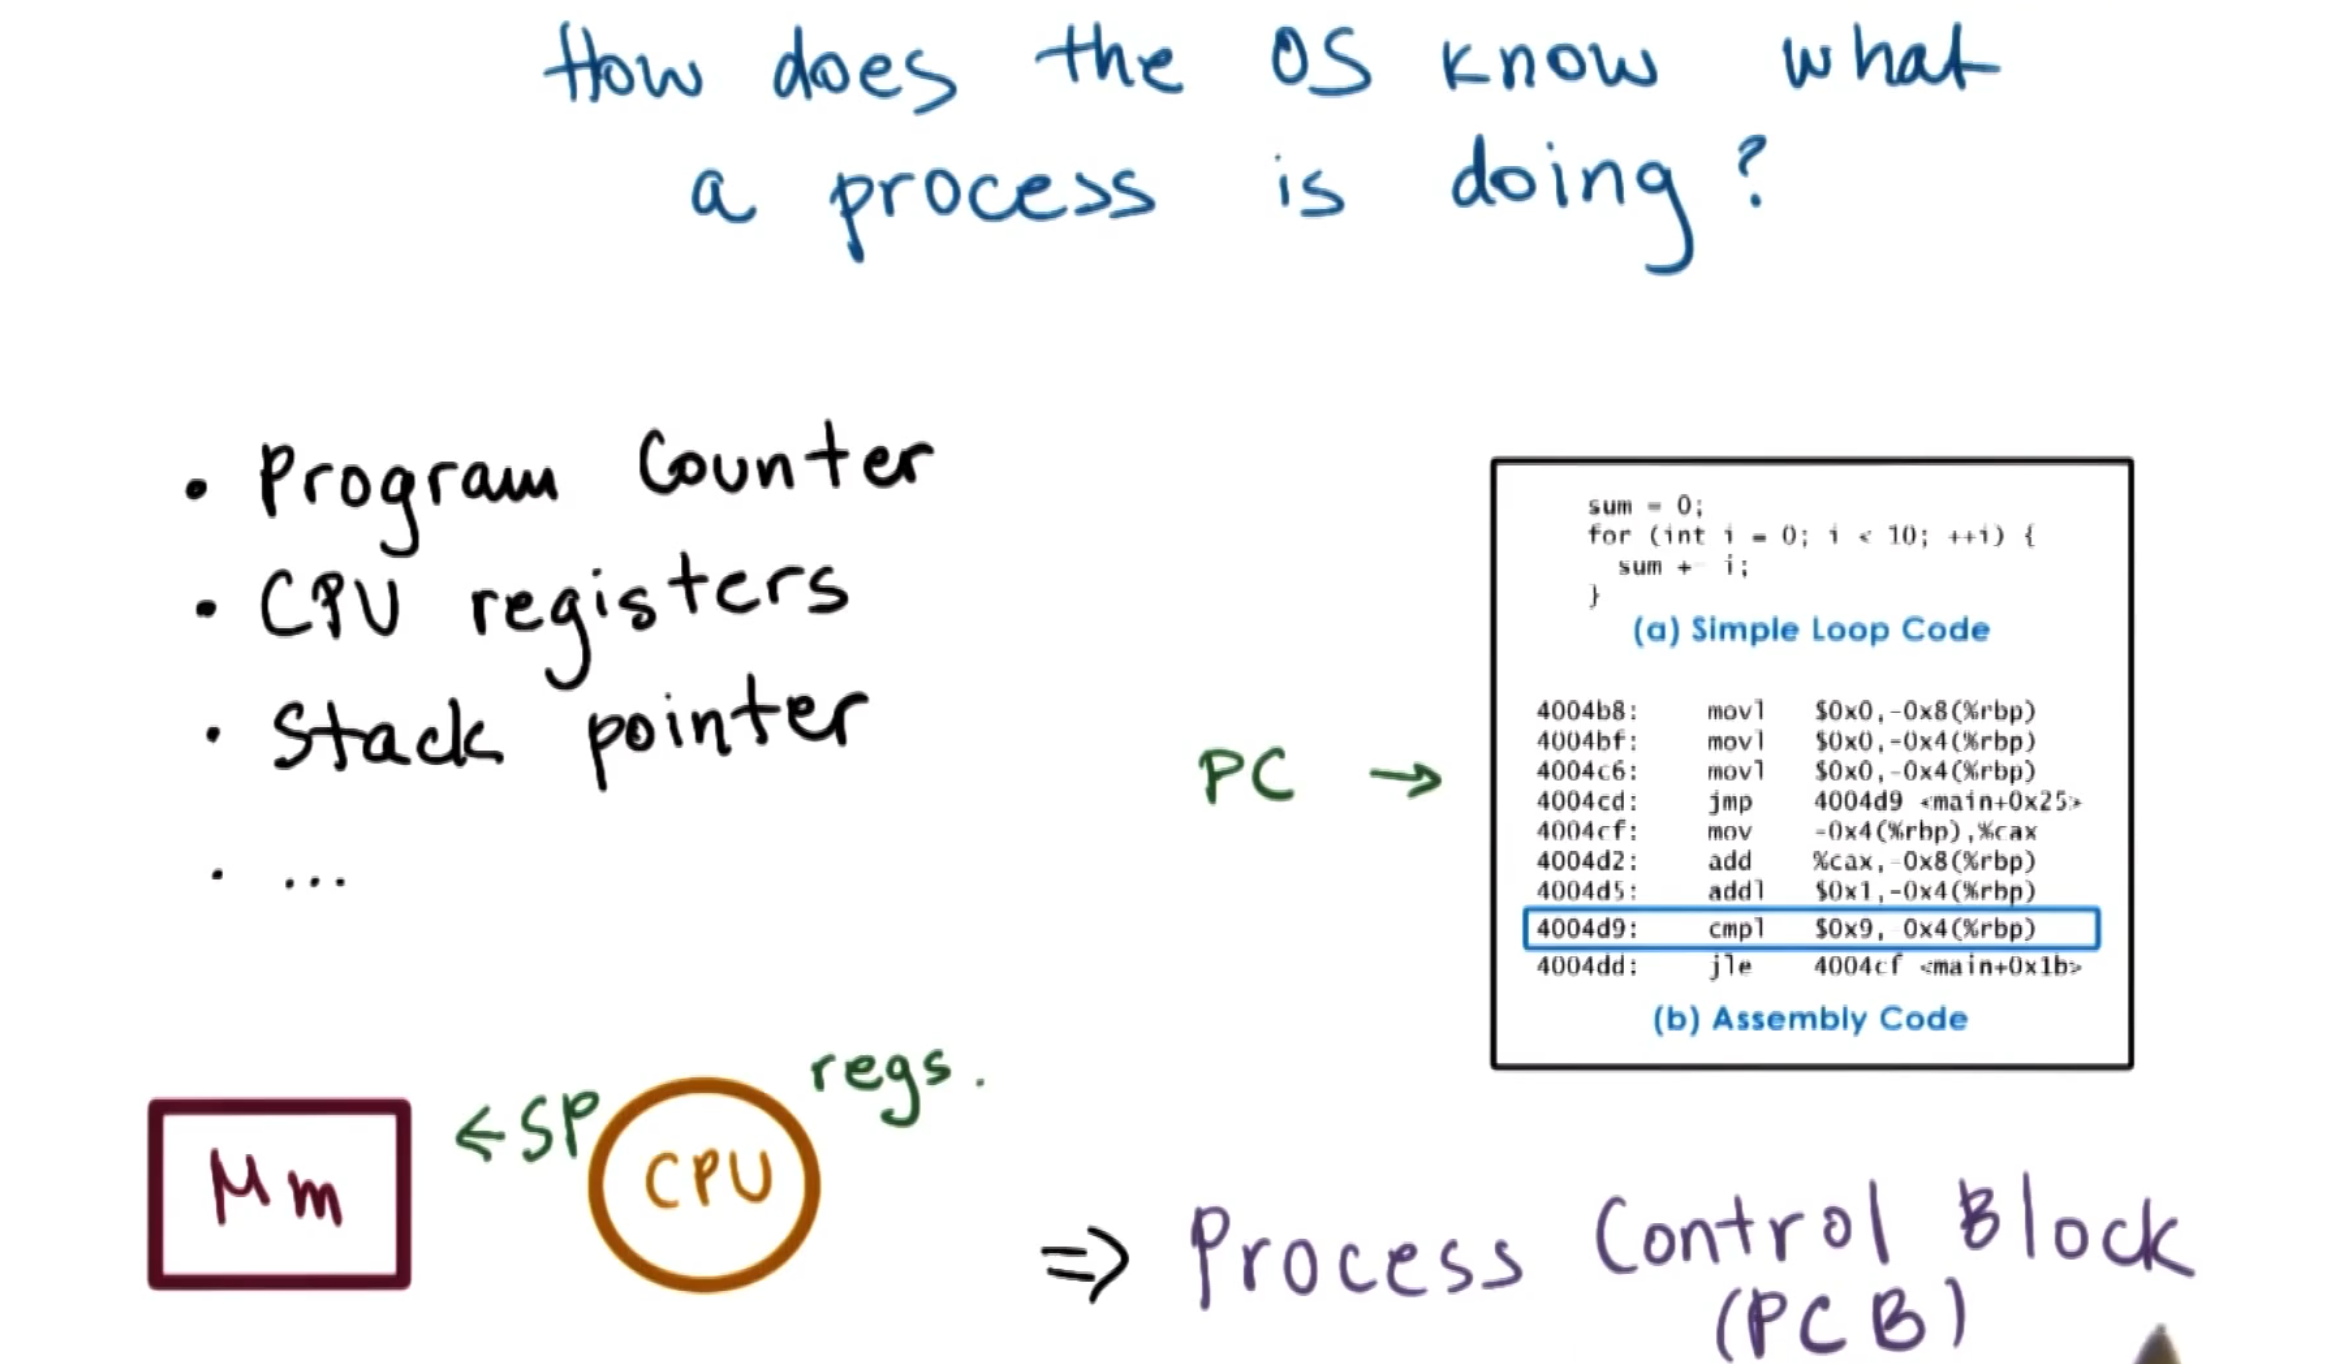 How does the OS know what
a process is doing?
• Program Counter
• CPU registers
• Stack pointer
• ...
PC →
sum = 0;
for (int i = 0; i < 10; ++i) {
sum + i;
}
(a) Simple Loop Code
4004b8: movl $0x0,-0x8(%rbp)
4004bf: movl $0x0,-0x4(%rbp)
4004c6: movl $0x0,-0x4(%rbp)
4004cd: jmp 4004d9 <main+0x25>
4004cf: mov -0x4(%rbp),%cax
4004d2: add %cax,-0x8(%rbp)
4004d5: addl $0x1,-0x4(%rbp)
4004d9: cmpl $0x9, 0x4(%rbp)
4004dd: jle 4004cf <main+0x1b>
(b) Assembly Code
Mm
←SP
CPU
regs.
⇒ Process Control Block
(PCB)